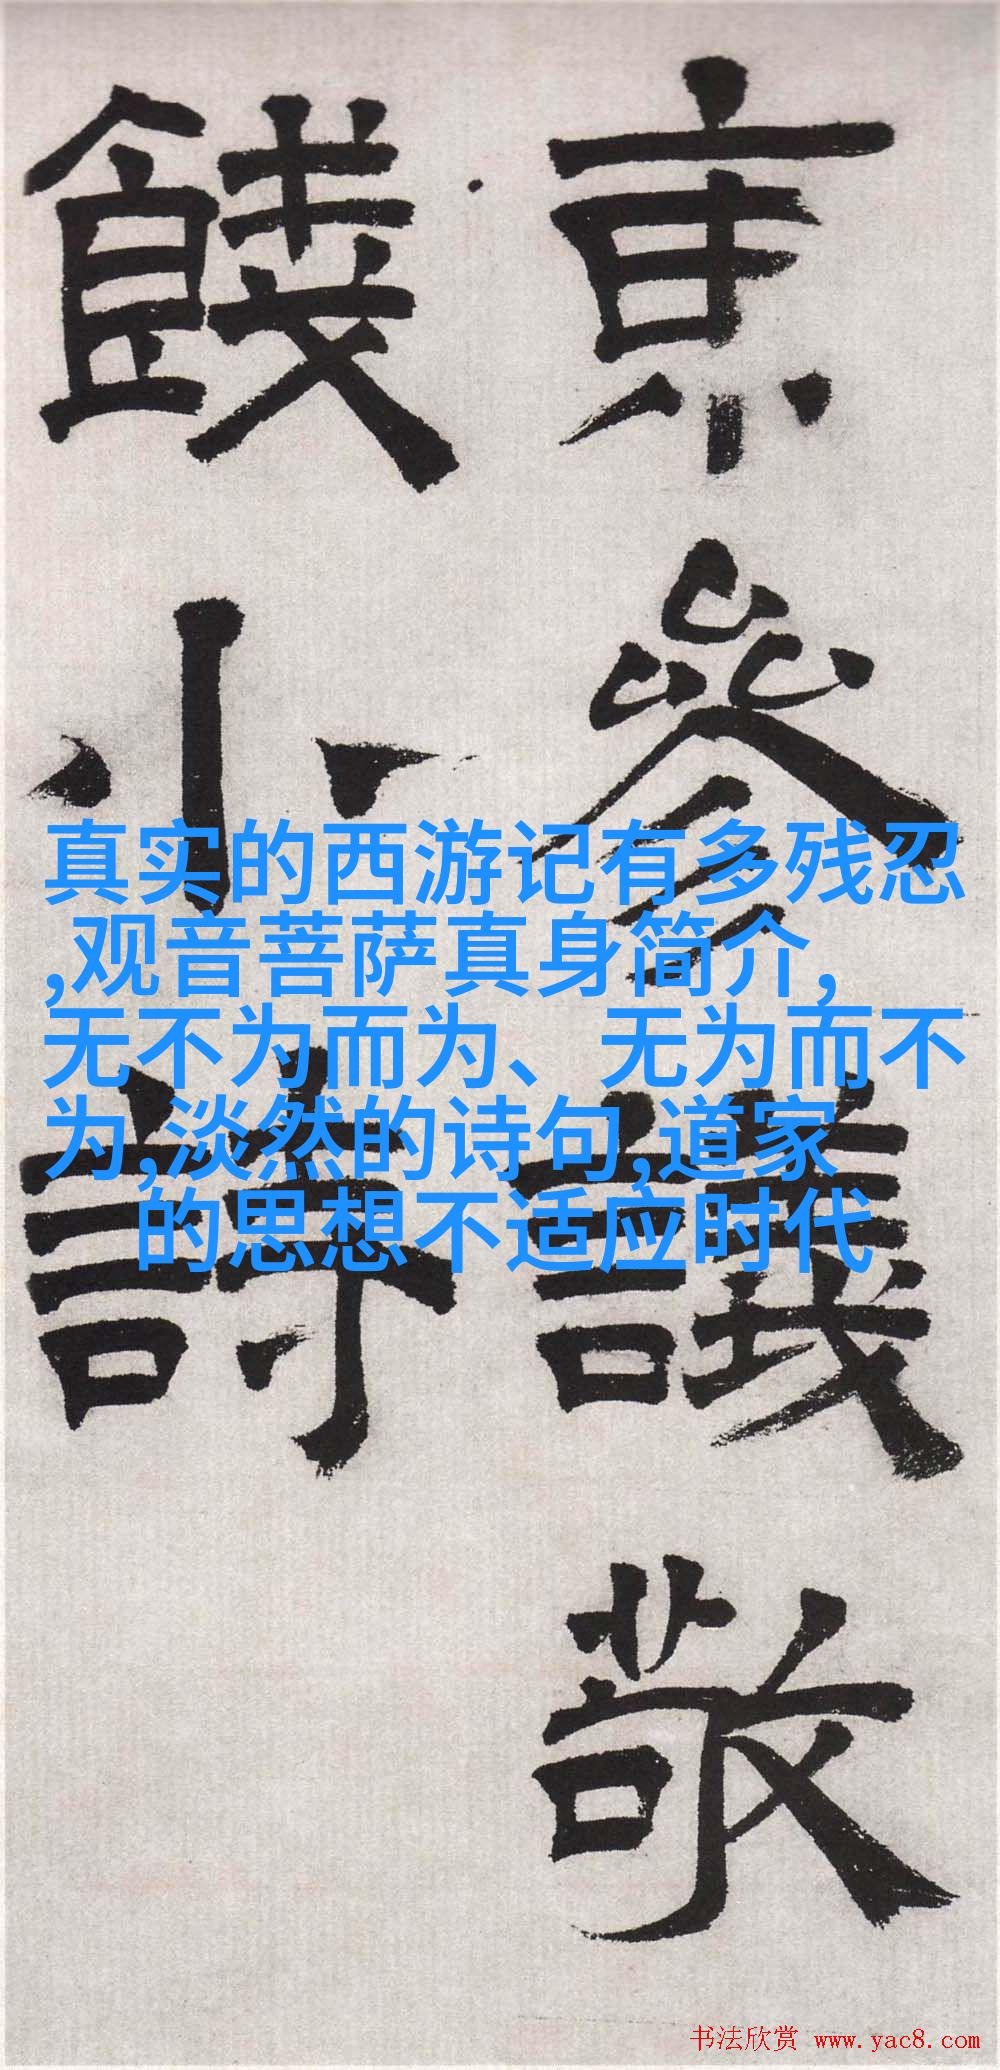 京參議敬
餞小詩
真实的西游记有多残忍
,观音菩萨真身简介,
无不为而为、无为而不
为,淡然的诗句,道家
的思想不适应时代
书法欣赏 www.yac8.com